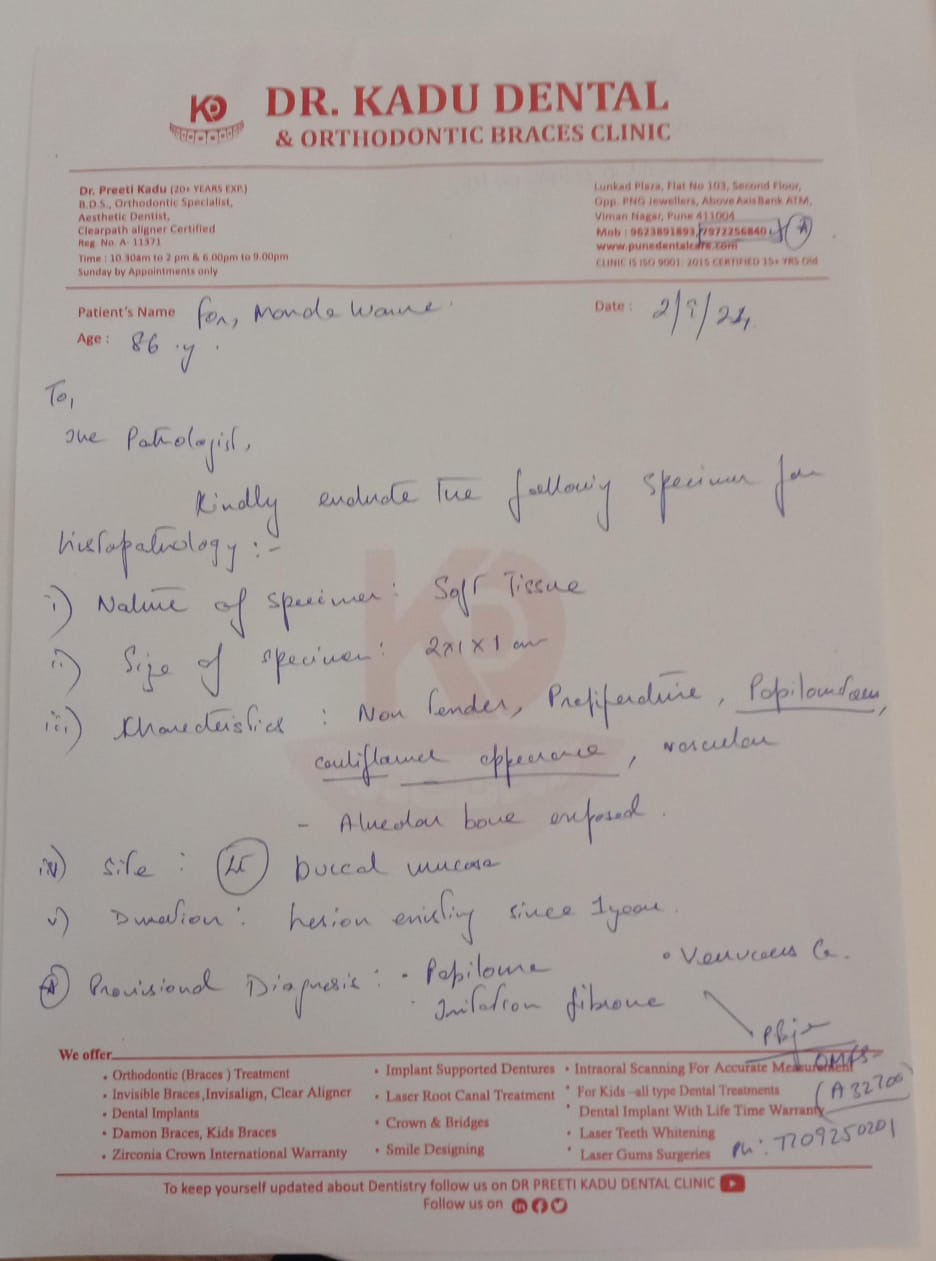 KD
DR. KADU DENTAL
& ORTHODONTIC BRACES CLINIC
Dr. Preeti Kadu (20+ YEARS EXP.)
B.D.S., Orthodontic Specialist,
Aesthetic Dentist,
Clearpath aligner Certified
Reg. No. A- 11371
Time : 10.30am to 2 pm & 6.00pm to 9.00pm
Sunday by Appointments only
Lunkad Plaza, Flat No 103, Second Floor,
Opp. PNG Jewellers, Above Axis Bank ATM,
Viman Nagar, Pune 411004
Mob : 9623891893, 7972256840 A
www.punedentalcare.com
CLINIC IS ISO 9001: 2015 CERTIFIED 15+ YRS Old
Patient's Name For,
Date :
Age : 86 y.
To,
The Pathologist,
Kindly evaluate the following specimen for
histopathology :-
i) Nature of specimen : Soft Tissue
ii) Size of specimen : 2x1x1 cm
iii) Kharecteristics : Non Tender, Proliferative,
cauliflower appearance, vascular
- Alveolar bone exposed.
iv) Site : buccal mucosa
v) Duration : Lesion existing since 1 year.
Provisional Diagnosis : • Papiloma • Verrucous Ca.
• Irritation fibroma
OMFS
(A 32700)
Ph : 7709250201
We offer
• Orthodontic (Braces ) Treatment
• Invisible Braces,Invisalign, Clear Aligner
• Dental Implants
• Damon Braces, Kids Braces
• Zirconia Crown International Warranty
• Implant Supported Dentures
• Laser Root Canal Treatment
• Crown & Bridges
• Smile Designing
• Intraoral Scanning For Accurate Measurement
• For Kids –all type Dental Treatments
• Dental Implant With Life Time Warranty
• Laser Teeth Whitening
• Laser Gums Surgeries
To keep yourself updated about Dentistry follow us on DR PREETI KADU DENTAL CLINIC
Follow us on